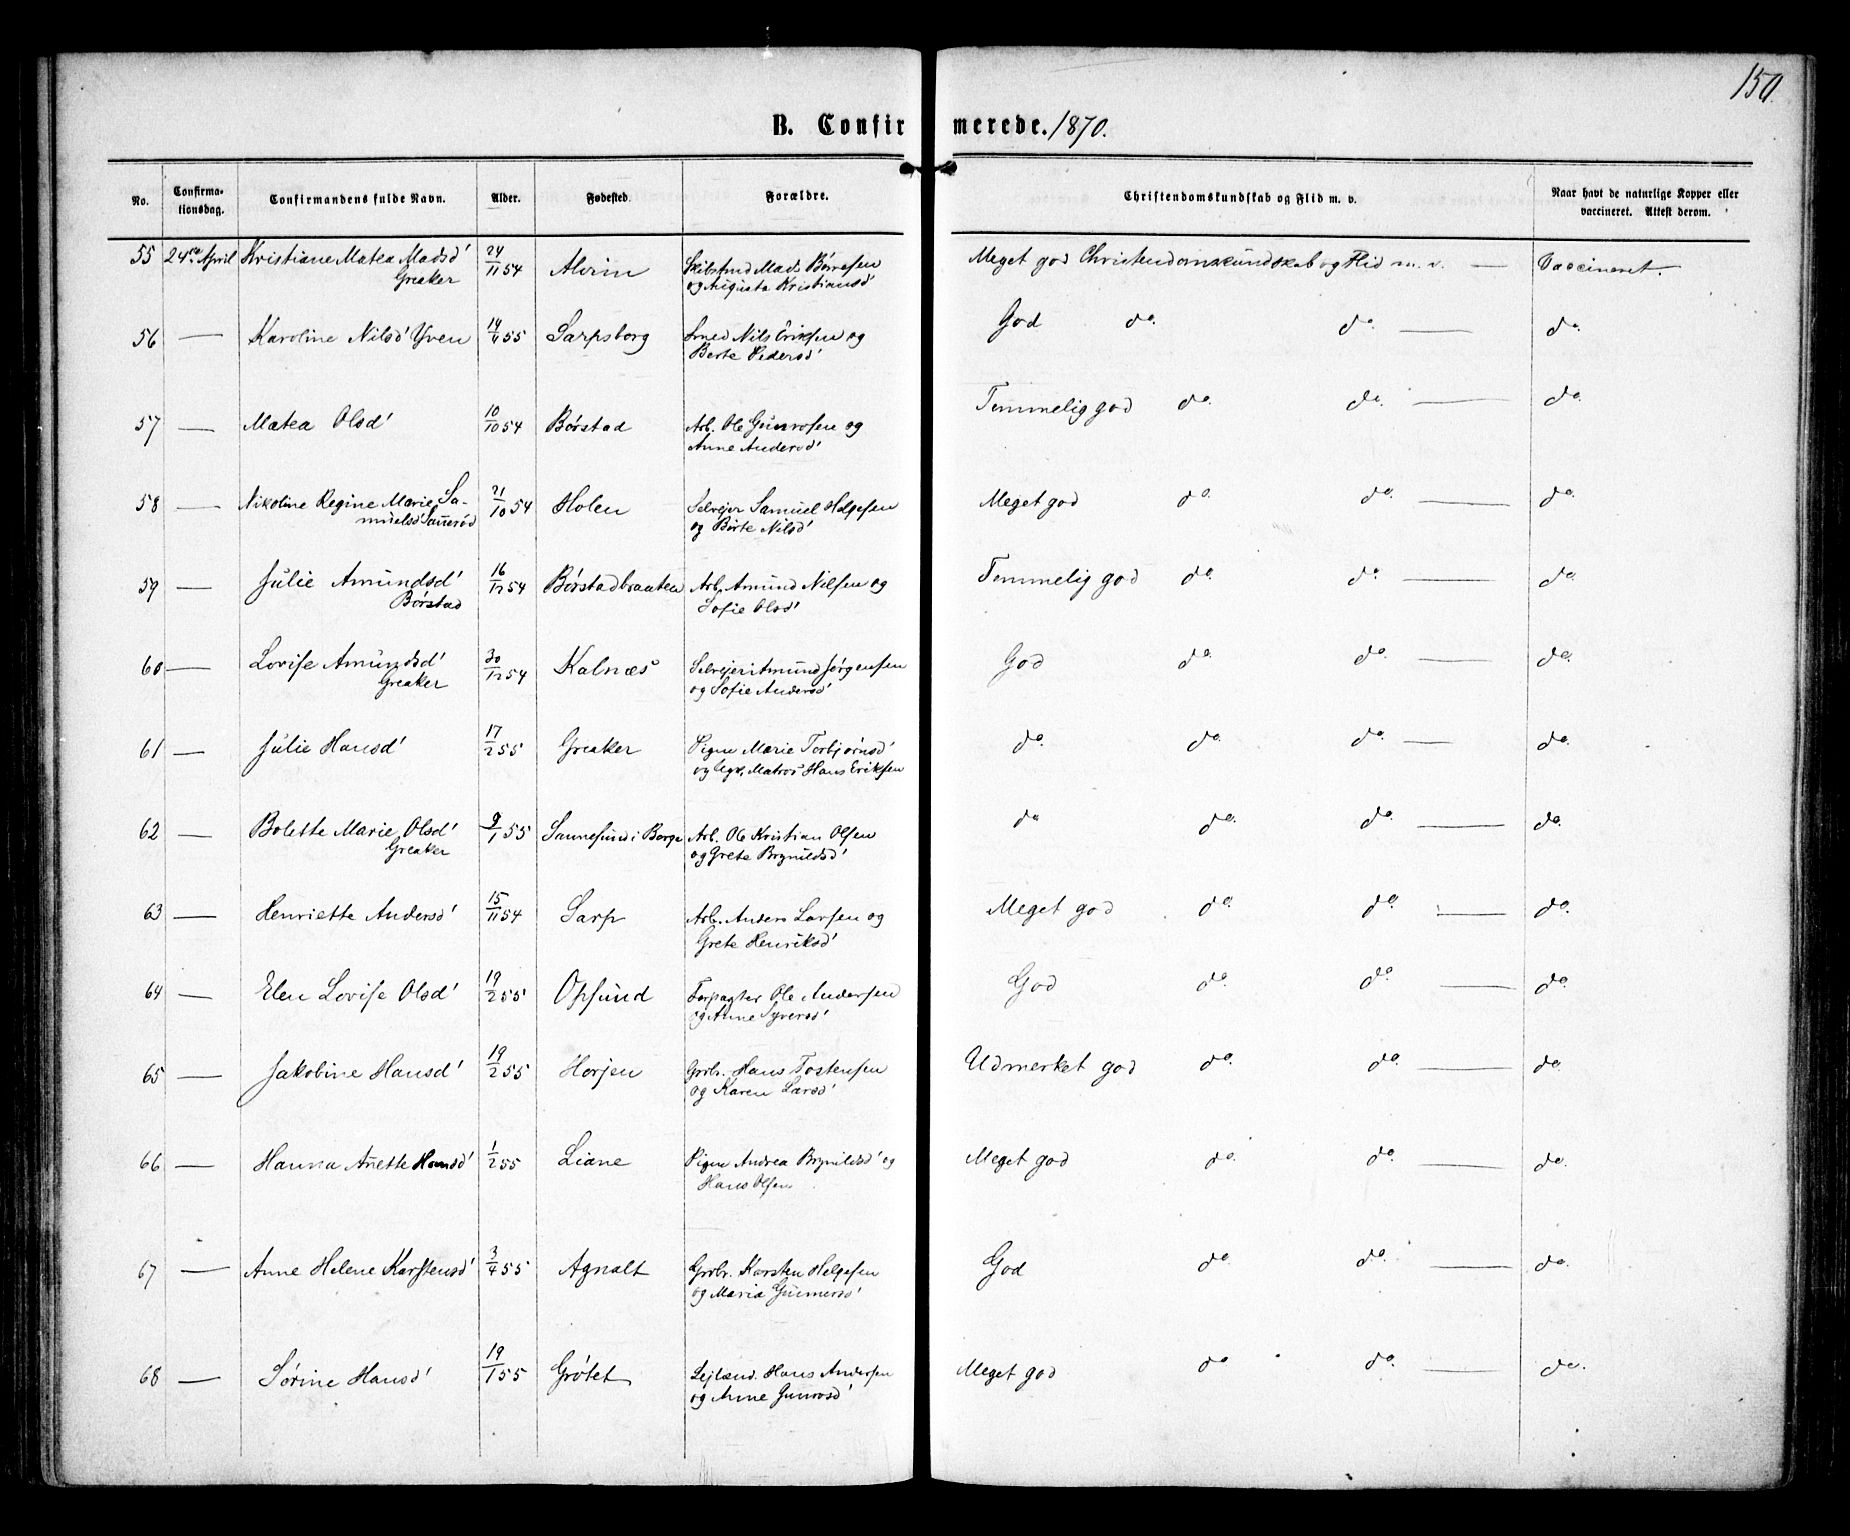 150.
B. Confirmerede. 1870.
No. Confirma-tionsdag. Confirmandens fulde Navn. Alder. Fødested. Forældre. Christendomskundskab og Flid m. v. Naar havt de naturlige Kopper eller vaccineret. Attest derom.
55 24de April Kristiane Matea Madsd' 24/11 54 Alvim Skibstmd Mads Børresen Meget god Christendomskundskab og Flid m. v. — Vaccineret.
Greaker og Augusta Kristiansd'
56 — Karoline Nilsd' Yven 14/6 55 Sarpsborg Smed Nils Eriksen og God do. do. — do.
Berte Pedersd'
57 — Matea Olsd' 10/10 54 Børstad Arb. Ole Gunrosen og Temmelig god do. do. — do.
Anne Andersd'
58 — Nikoline Regine Marie Sa- 21/10 54 Holen Selvejer Samuel Helgesen Meget god do. do. — do.
muelsd' Sannerød og Børte Nilsd'
59 — Julie Amundsd' 16/12 54 Børstadbraaten Arb. Amund Nilsen og Temmelig god do. do. — do.
Børstad Sofie Olsd'
60 — Lovise Amundsd' 30/12 54 Kalnæs Selvejer Amund Jørgensen God do. do. — do.
Greaker og Sofie Andersd'
61 — Julie Hansd' 17/2 55 Greaker Pigen Marie Torbjørnsd' do. do. do. — do.
og Ugk. Matros Hans Eriksen
62 — Bolette Marie Olsd' 9/1 55 Sannesund i Borge Arb. Ole Kristian Olsen do do. do. — do.
Greaker og Grete Brynildsd'
63 — Henriette Andersd' 15/11 54 Sarp Arb. Anders Larsen og Meget god do. do. — do.
Grete Henriksd'
64 — Elen Lovise Olsd' 19/2 55 Opsund Forpagter Ole Andersen God do. do. — do.
og Anne Syversd'
65 — Jakobine Hansd' 19/2 55 Horjen Grbr. Hans Tostensen Udmerket god do. do. — do.
og Karen Larsd'
66 — Hanna Anette Hansd' 1/2 55 Liane Pigen Andrea Brynildsd' og Meget god do. do. — do.
Hans Olsen
67 — Anne Helene Karstensd' 3/4 55 Agnalt Grbr. Karsten Helgesen God do. do. — do.
og Maria Gunnersd'
68 — Sørine Hansd' 19/1 55 Grøtet Lejlænd. Hans Andersen Meget god do do. — do.
og Anne Gunrosd'